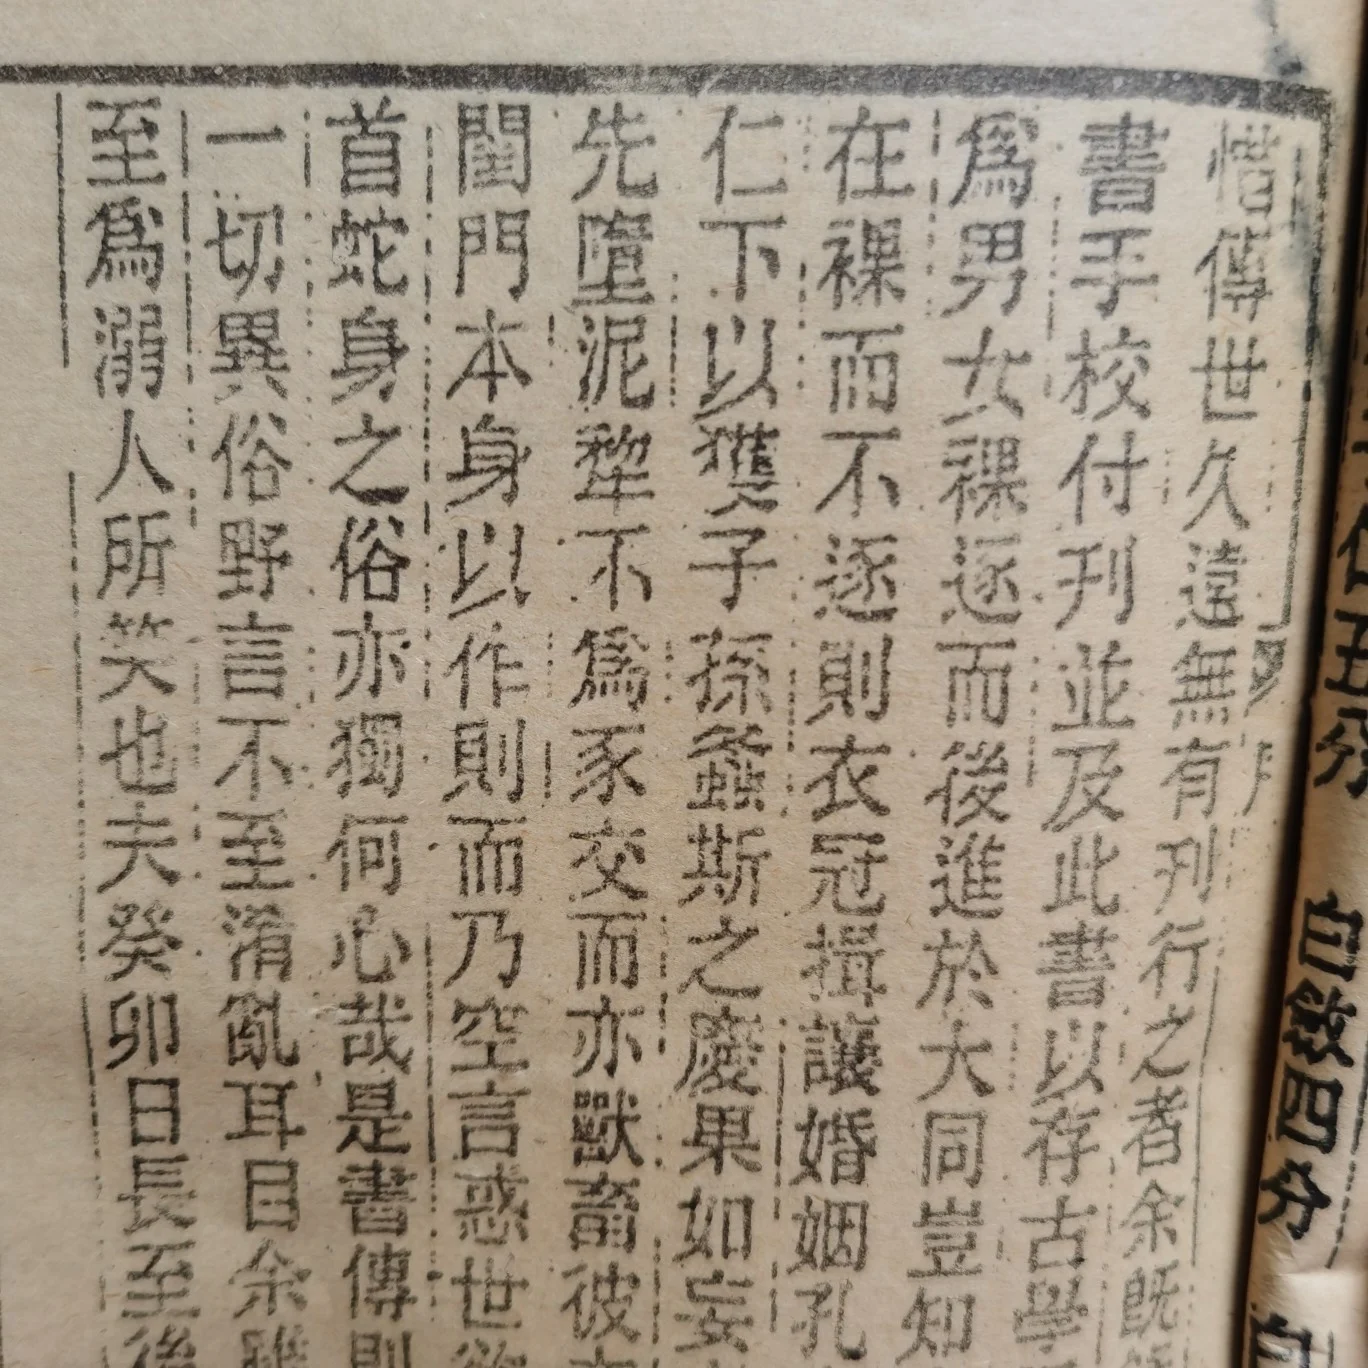 惜傳世久遠無有刊行之者余既
書手校付刊並及此書以存古學
爲男女裸逐而後進於大同豈知
在裸而不逐則衣冠揖讓婚姻孔
仁下以獲子孫螽斯之慶果如妄
先墮泥犂不爲豕交而亦獸畜彼
閨門本身以作則而乃空言惑世
首蛇身之俗亦獨何心哉是書傳則
一切異俗野言不至淆亂耳目余雖
至爲溺人所笑也夫癸卯日長至後
白
四分